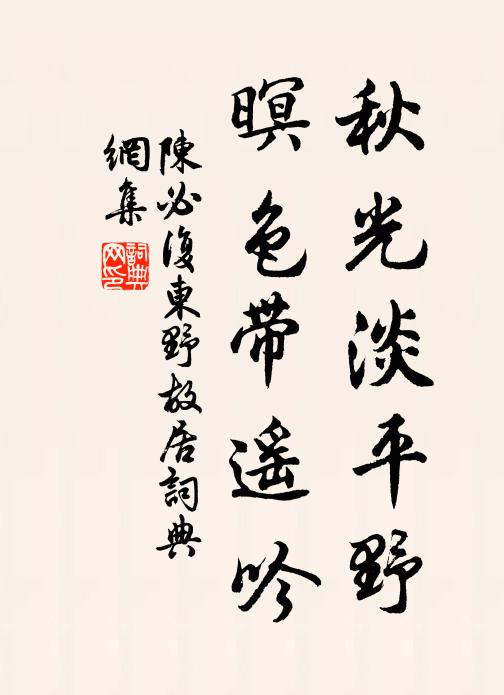 秋光淡平野
暝色帶遥吟
陳必復東野故居詞典
網集
詞典網印